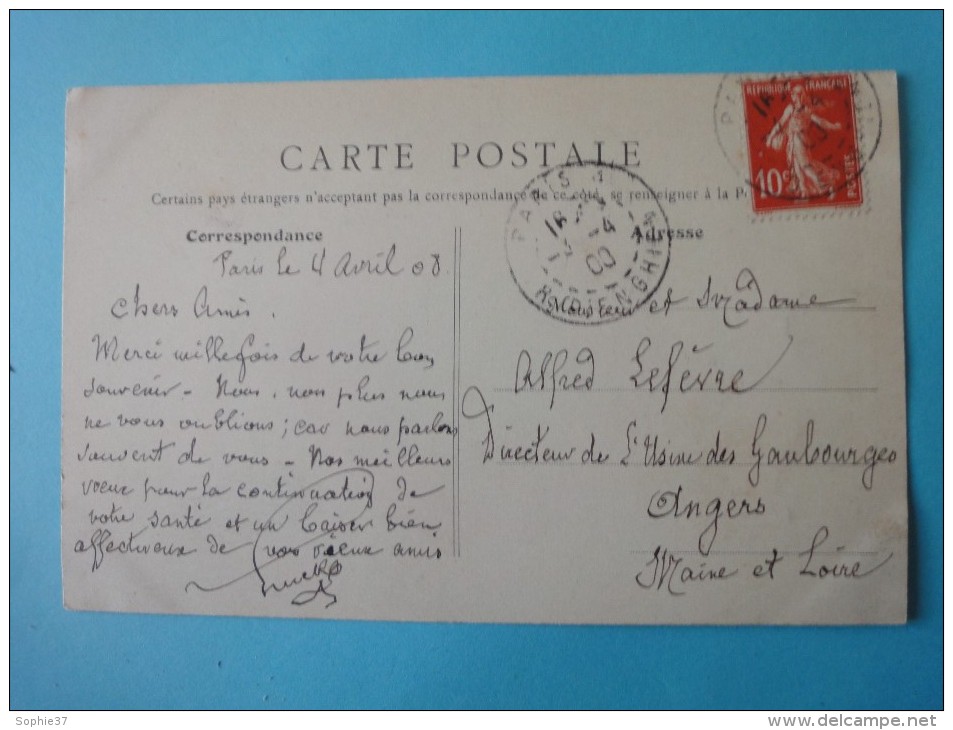 CARTE POSTALE
Certains pays étrangers n'acceptant pas la correspondance de ce côté, se renseigner à la P.
Correspondance
Paris le 4 Avril 08.
Chers Amis.
Merci mille fois de votre bon
souvenir - Nous, non plus nous
ne vous oublions ; car nous parlons
souvent de vous - Nos meilleurs
voeux pour la continuation de
votre santé et un baiser bien
affectueux de vos vieux amis
Adresse
Monsieur et Madame
Alfred Lefèvre
Directeur de l'Usine des Gaubourges
Angers
Maine et Loire
REPUBLIQUE FRANÇAISE
10
POSTES
PARIS
ENGHIEN
Sophie37
www.delcampe.net